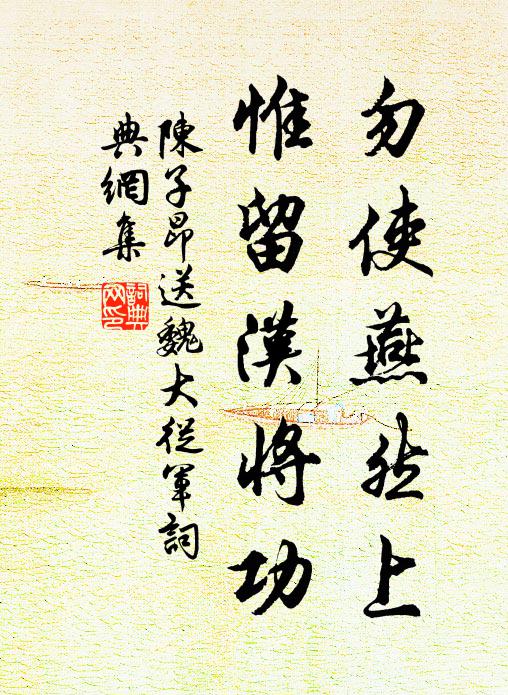 勿使燕然上
惟留漢将功
陳子昂送魏大從軍詞
典網集
詞典
网印